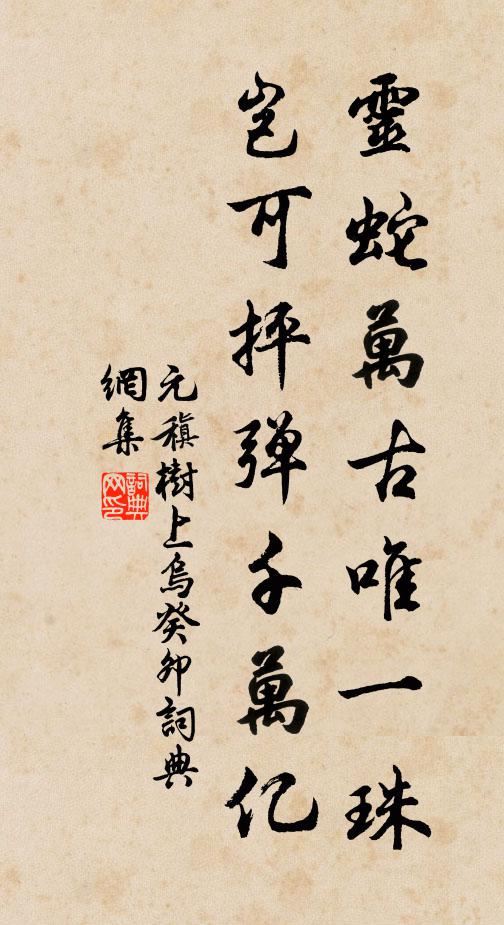 靈蛇萬古唯一珠
豈可抨弹千萬亿
元稹樹上烏癸卯詞典
網集
詞典
网印